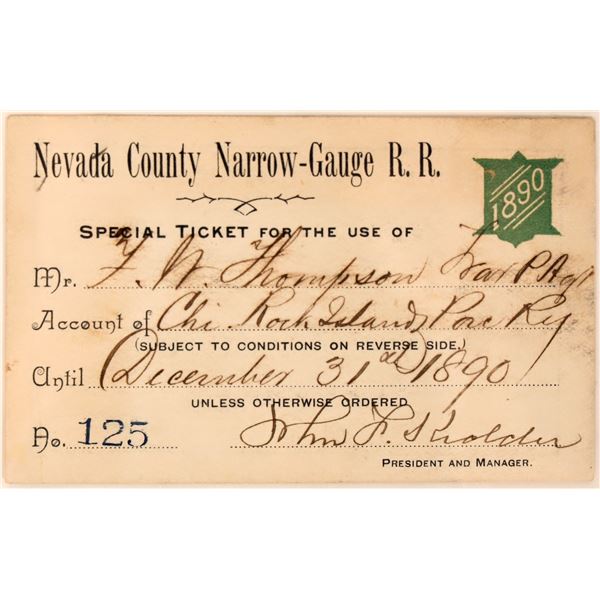 Nevada County Narrow-Gauge R. R.
1890
SPECIAL TICKET FOR THE USE OF
Mr. F. W. Thompson Trav P. Agt
Account of Chi. Rock Island, Pac Ry
(SUBJECT TO CONDITIONS ON REVERSE SIDE.)
Until December 31st 1890
UNLESS OTHERWISE ORDERED
No. 125 John F. Kidder
PRESIDENT AND MANAGER.